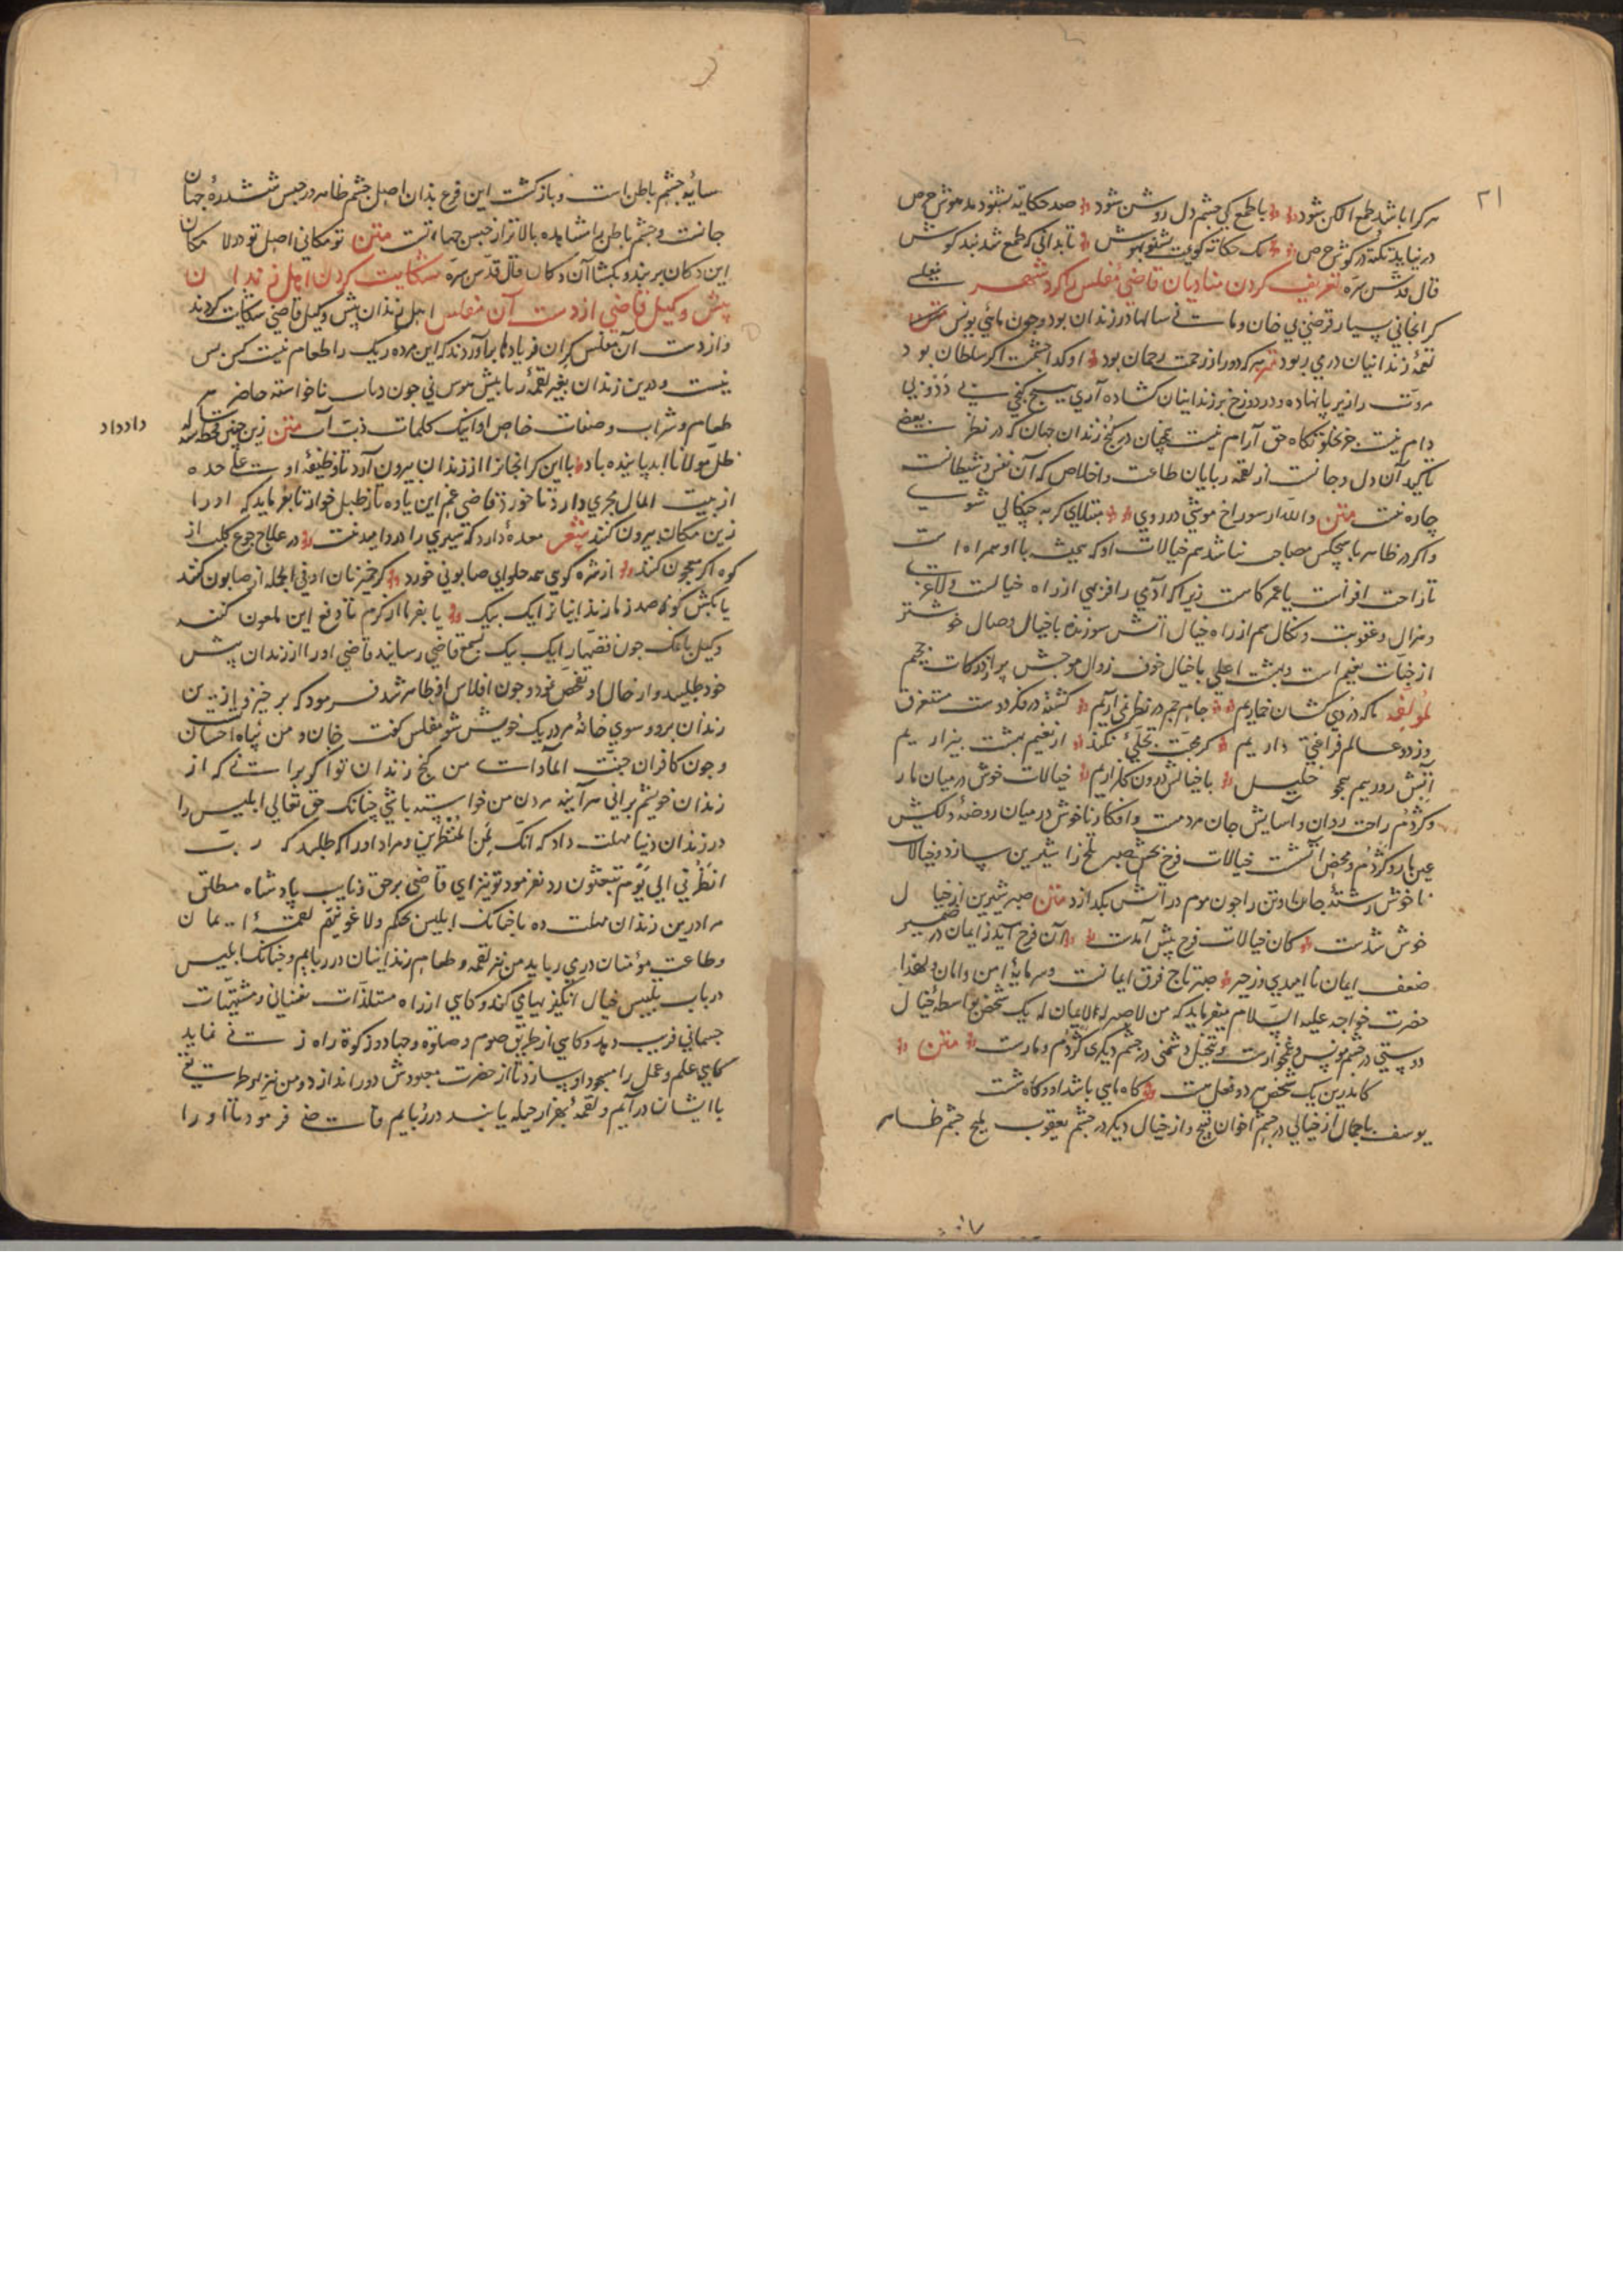 ۲۱
هر کرا باشد طمع الکن شود با طمع کی چشم دل روشن شود صد حکایت بشنود مدهوش حرص
در نیاید نکته در کوش حرص یک حکایة کویمت بشنو بهوش تا بدانی که طمع شد بند کوش
قال قدس سره تعریف کردن منادیان قاضی مفلس را کرد شهر
کرانجانی بسیار قرضی بی خان و مان سالها در زندان بود و چون ماهی یونس
لقمهٔ زندانیان در می ربود هر که دور از رحمت رحمان بود او کدا چشمت اکر سلطان بود
مروت را زیر پا نهاده و در دوزخ بر زندانیان کشاده آری هیچ کنجی بی دد و بی
دام نیست جز بخلوتکاه حق آرام نیست در کنج زندان جهان که در نظر بعضی
آن دل و جانست از لقمه ربایان طاعت و اخلاص که آن نفس و شیطانست
چاره نیست متن والله ار سوراخ موشی در روی مبتلای کربه چنکالی شوی
و اکر در ظاهر با هیچکس مصاحب نباشد هم خیالات او که همیشه با او همراه است
تا راحت افزاست یا عمر کاست زیرا که آدمی را فربهی از راه خیالست و لاغری
و هزال و عقوبت و نکال هم از راه خیال آتش سوزنده با خیال وصال خوشتر
از جنات نعیم است و بهشت اعلی با خیال خوف زوال موحش پر از درکات جحیم
لمؤلفه ما که دردی کشان خماریم جام جم در نظر نمی آریم کشته در فکر دوست مستغرق
وز دو عالم فراغتی داریم کر محبت تجلی نکند از نعیم بهشت بیزاریم
آتش رویم همچو خلیل با خیالش درون کلزاریم خیالات خوش در میان مار
و کژدم راحت روان و آسایش جان مردمست و افکار ناخوش در میان روضهٔ دلکش
عین مار و کژدم و محض آتشست خیالات فرح بخش صبر تلخ را شیرین سازد و خیالات
ناخوش رشتهٔ جان و تن را چون موم در آتش بکدازد متن صبر شیرین از خیال
خوش شدست کان خیالات فرح پیش آمدست آن فرح آید ز ایمان در ضمیر
ضعف ایمان ناامیدی و زحیر صبر تاج فرق ایمانست و سرمایهٔ امن و امان و لهذا
حضرت خواجه علیه السلام میفرماید که من لا صبر له لا ایمان له یک شخص بواسطهٔ خیال
دوستی در چشم مونس و غمخوارست و بتخیل دشمنی در چشم دیکری کژدم و مارست متن
کاندرین یک شخص هر دو فعل هست کاه ماهی باشد او و کاه شست
یوسف باجمال از خیالی در چشم اخوان قبیح و از خیال دیکر در چشم یعقوب ملیح چشم ظاهر
سایهٔ چشم باطن است و بازکشت این فرع بدان اصل چشم ظاهر در حبس ششدرهٔ جهان
جانست و چشم باطن را مشاهده بالاتر از حبس جهاتست متن تو مکانی اصل تو در لامکان
این دکان بر بند و بکشا آن دکان قال قدس سره شکایت کردن اهل زندان
پیش وکیل قاضی از دست آن مفلس اهل زندان پیش وکیل قاضی شکایت کردند
و از دست آن مفلس کران فریادها برآوردند که این مرده ریک را طعام شصت کس بس
نیست و درین زندان بغیر لقمه ربایش هوس نی چون ذباب ناخواسته حاضر هر
طعام و شراب و صفات خاص او اینک کلمات متن زین چنین قحط سه ساله داد داد
ظل مولانا ابد پاینده باد یا این کرانجانرا از زندان بیرون آرد تا وظیفهٔ او علی حده
از بیت المال مجری دارد تا خورد قاضی غم این یا بفرماید که او را
زین مکان بیرون کنند شعر معدهٔ دارد که سیری را درو امید نیست در علاج جوع کلب از
کوه اکر معجون کند از شره کویی همه حلوای صابونی خورد کر خمیر نان او فی الجمله از صابون کنند
یا بکش کو صد زیان زندانیان از یک بیک یا بفرما از کرم تا دفع این ملعون کنند
وکیل بانمک چون قصها را یک بیک بسمع قاضی رسانید قاضی او را از زندان پیش
خود طلبید و از حال او تفحص نمود چون افلاس او ظاهر شد فرمود که بر خیز و ازین
زندان برو و سوی خانهٔ مردریک خویش شو مفلس کفت خان و من احسان تست
و چون کافران جنت الماوات من کنج زندان تو اکر براستی که از
زندان خویشم برانی هر آینه مردن من خواسته باشی چنانک حق تعالی ابلیس را
در زندان دنیا مهلت داد که انک لمن المنظرین و مراد او را که طلبید که رب
انظرنی الی یوم یبعثون رد نفرمود تو نیز ای قاضی بر حق و نایب پادشاه مطلق
مرا درین زندان مهلت ده تا چنانک ابلیس بحکم ولاغوینهم لقمهٔ ایمان
و طاعت مؤمنان در می رباید من نیز لقمه و طعام زندانیان در ربایم و چنانک ابلیس
در باب تلبیس خیال انکیزیهای کند و کاهی از راه مستلذات نفسانی و مشتهیات
جسمانی فریب دهد و کاهی از طریق صوم و صلوة و جهاد و زکوة راه زنی نماید
کاهی علم و عمل را مسجود او سازد تا از حضرت معبودش دور اندازد و من نیز بهر طریقی
با ایشان در آیم و لقمهٔ بهزار حیله یا بند در ربایم قاضی فرمود تا او را